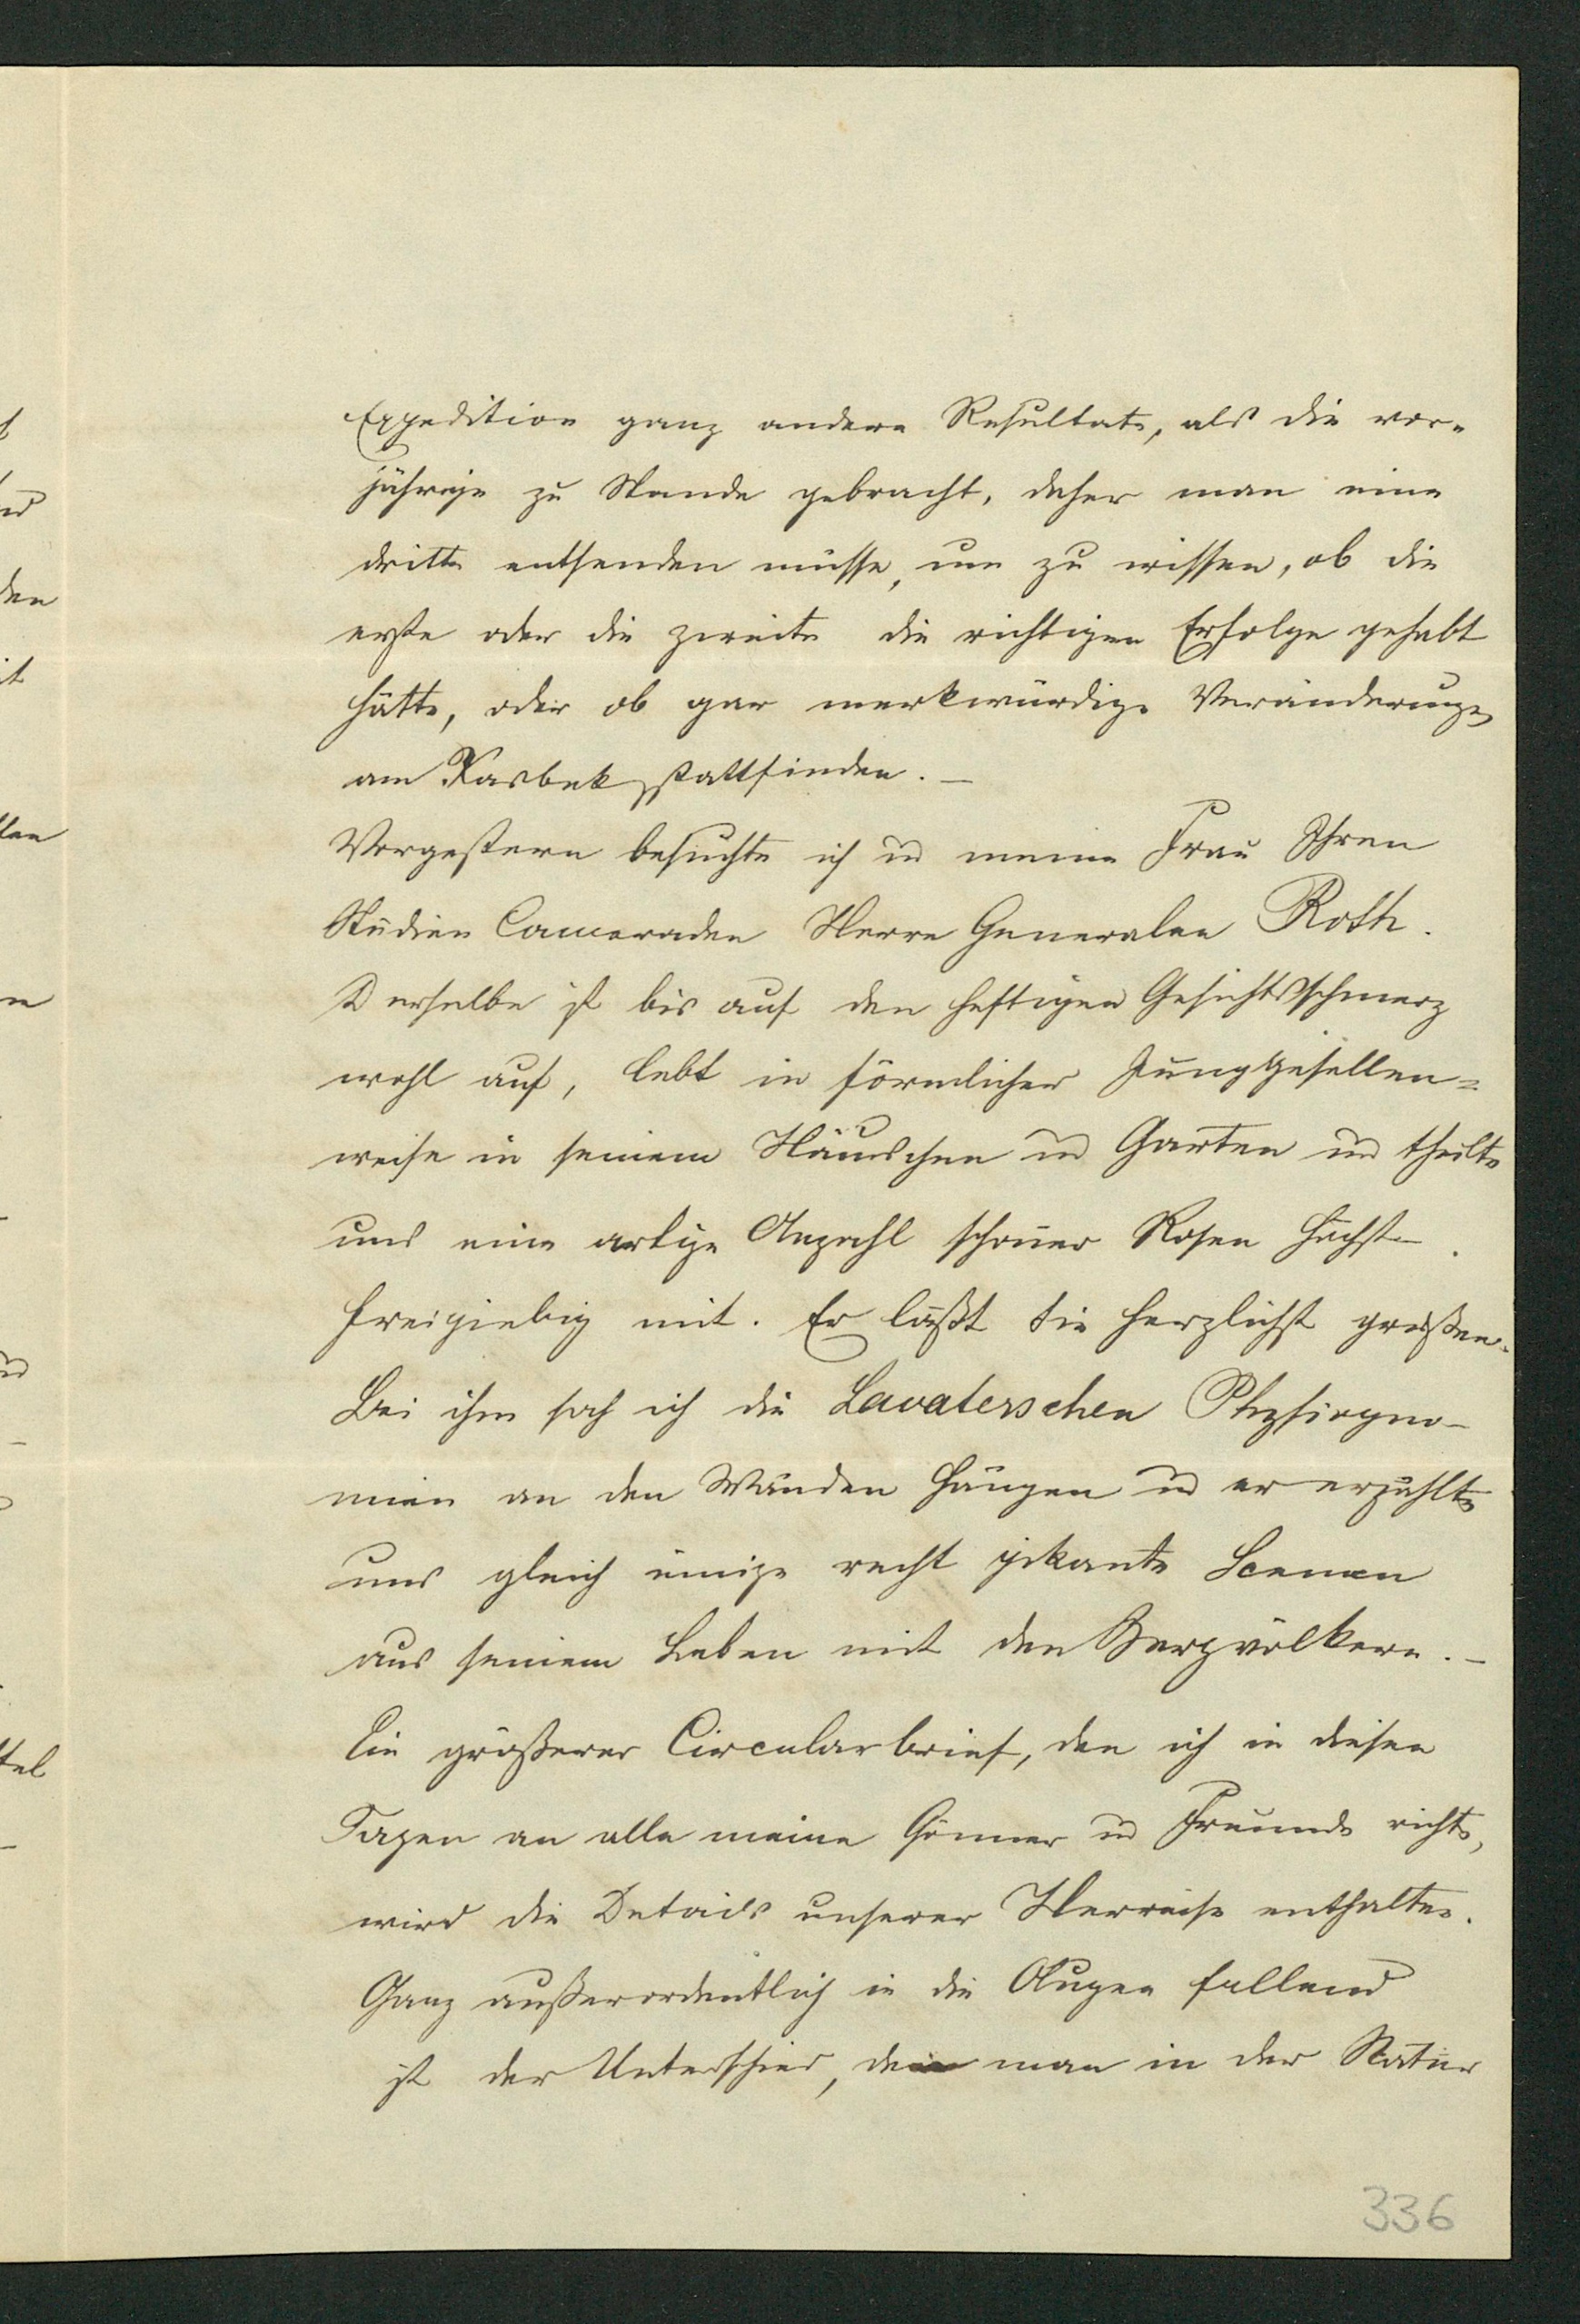 Expedition ganz andere Resultate, als die vor-
jährige zu Stande gebracht, daher man eine
dritte entsenden müsse, um zu wissen, ob die
erste oder die zweite die richtigen Erfolge gehabt
hätte, oder ob gar merkwürdige Veränderungen
am Kasbek stattfinden. –
Vorgestern besuchte ich u meine Frau Ihren
Studien Cameraden Herrn Generalen Roth.
Derselbe ist bis auf den heftigen Gesichtsschmerz
wohl auf, lebt in förmlicher Junggesellen=
weise in seinem Häuschen u Garten und theilte
uns eine artige Anzahl schöner Rosen höchst
freigiebig mit. Er läßt Sie herzlichst grüßen.
Bei ihm sah ich die Lavaterschen Physiogno-
mien an den Wänden hängen u er erzählte
uns gleich einige recht pikante Scenen
aus seinem Leben mit den Bergvölkern. –
Ein größerer Circularbrief, den ich in diesen
Tagen an alle meine Gönner u Freunde richte,
wird die Details unserer Herreise enthalten.
Ganz außerordentlich in die Augen fallend
ist der Unterschied, den man in der Natur
336
den
it
tel